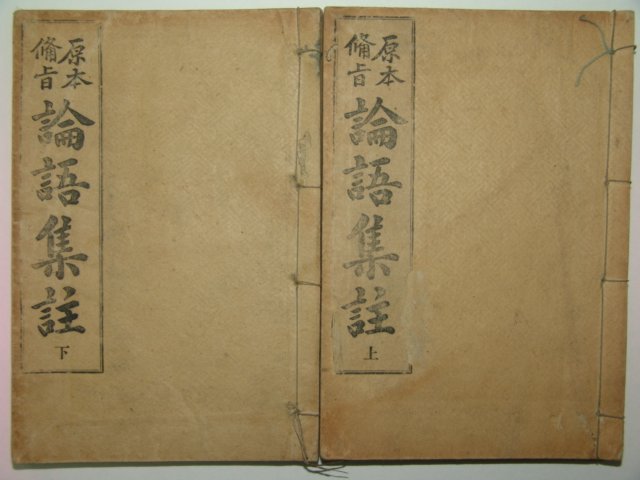 原本
備旨
論語集註
上
原本
備旨
論語集註
下